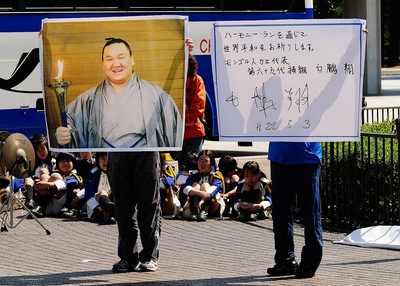 ハーモニーランを通じて、
世界平和をお祈りします。
モンゴル人力士代表
第六十九代横綱 白鵬 翔
白鵬 翔
H22.3.3